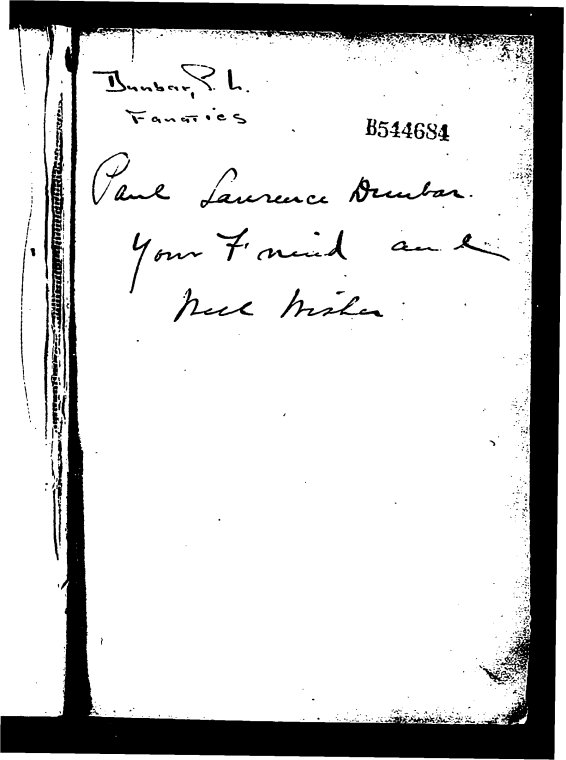 Dunbar, P. L.
Fanatics
B544684
Paul Lawrence Dunbar.
Your Friend and
Well Wisher